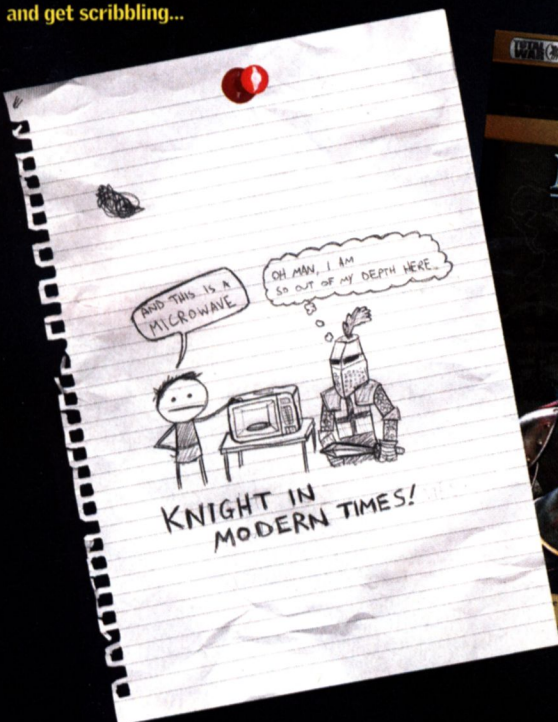 and get scribbling...
TOTAL
WAR
AND THIS IS A
MICROWAVE
OH MAN, I AM
SO OUT OF MY DEPTH HERE..
KNIGHT IN
MODERN TIMES!